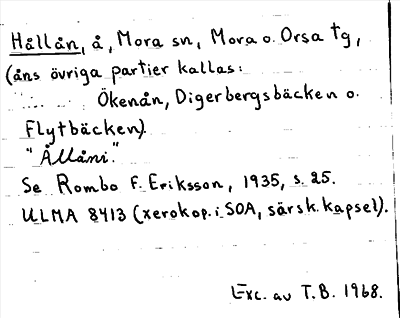 Hållån, å, Mora sn, Mora o. Orsa tg,
(åns övriga partier kallas:
Ökenån, Digerbergsbäcken o.
Flytbäcken).
"Ållåni."
Se Rombo F. Eriksson, 1935, s. 25.
ULMA 8413 (xerokop. i SOA, särsk. kapsel).
Exc. av T.B. 1968.